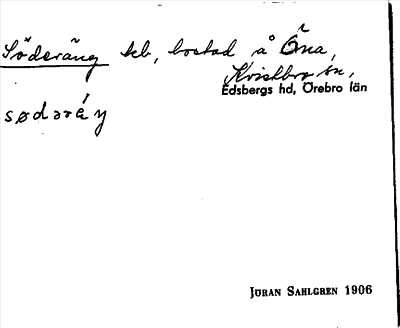 Söderäng lb, bostad å Öna,
Kvistbro sn,
Edsbergs hd, Örebro län
sødəréŋ
JÖRAN SAHLGREN 1906